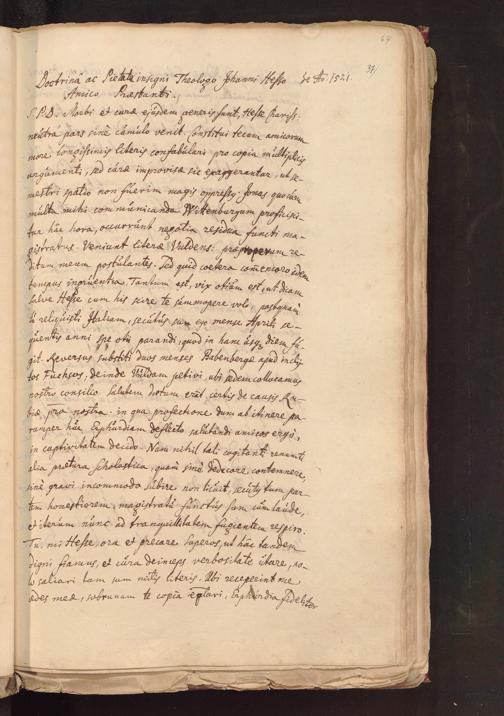 64
37/
Doctrinâ ac Pietate insigni Theologo Johanni Hesso de Ao 1521.
Amico Præstanti.
S. P. D. Morbi et curæ ejusdem generis sunt, Hesse suaviss.
neutra pars sine cumulo venit. Constitui tecum amicorum
more longissimis literis confabulari, pro copia multiplicis
argumenti, sed curæ improvisæ sic exaggerantur, ut se-
mestri spatio non fuerim magis oppressus. Jonas quoniam
multa mihi communicanda Wittenburgum proficisci-
tur hac hora, occurrunt negotia residua functi ma-
gistratus. Veniunt literæ Vuldens: præproperum re-
ditum meum postulantes. Sed quid cætera commemoro idem
tempus ingruentia. Tantum est, vix otium est, ut dicam
salve Hesse cum his scire te summopere volo, postquam
tu reliquisti Italiam, secutus sum ego mense Aprili se-
quentis anni spe otii parandi, quod in hanc usq; diem fu-
git. Reversus substiti duos menses Babenbergæ apud incly-
tos Fuchsos, deinde Vuldam petivi, ubi sedem collocamus
nostro consilio. Salutem dictum erit certis de causis
pro nostra. in qua profectione dum ab itinere pa-
rumper hac Erphurdiam deflecto, salutandi amicos ergo,
in captivitatem decido. Nam nihil tali cogitanti
alia prætura scholastica, quam sine dedecore contemnere,
sine gravi incommodo subire non licuit, secutus tum par-
tem honestiorem, magistratu functus sum cum laude,
et iterum nunc ad tranquillitatem fugientem respiro.
Tu, mi Hesse, ora et precare Superos, ut hac tandem
digni fiamus, et cura deinceps verbositate utare, no-
lo salvari tam sum meis literis. Ubi receperint me
ædes meæ, sobrunam te copia Erphurdia fideliter